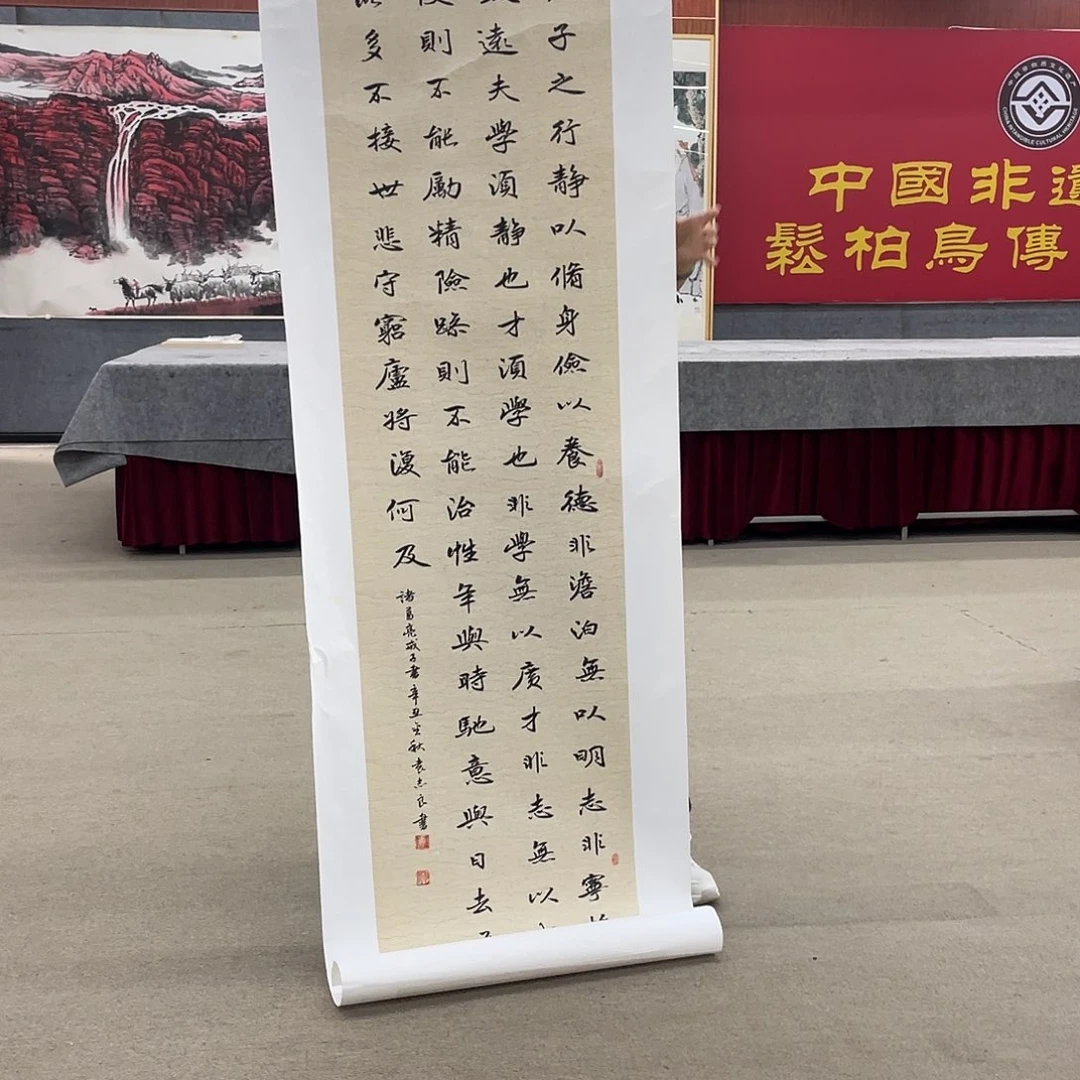 子之行静以脩身儉以養德非澹泊無以明志非寧
遠夫學須静也才須學也非學無以廣才非志無以
則不能勵精險躁則不能治性年與時馳意與日去
多不接世悲守窮廬將復何及
諸葛亮誡子書辛丑金秋袁志良書
CHINA INTANGIBLE CULTURAL HERITAGE
中國非遺
鬆柏鳥傳